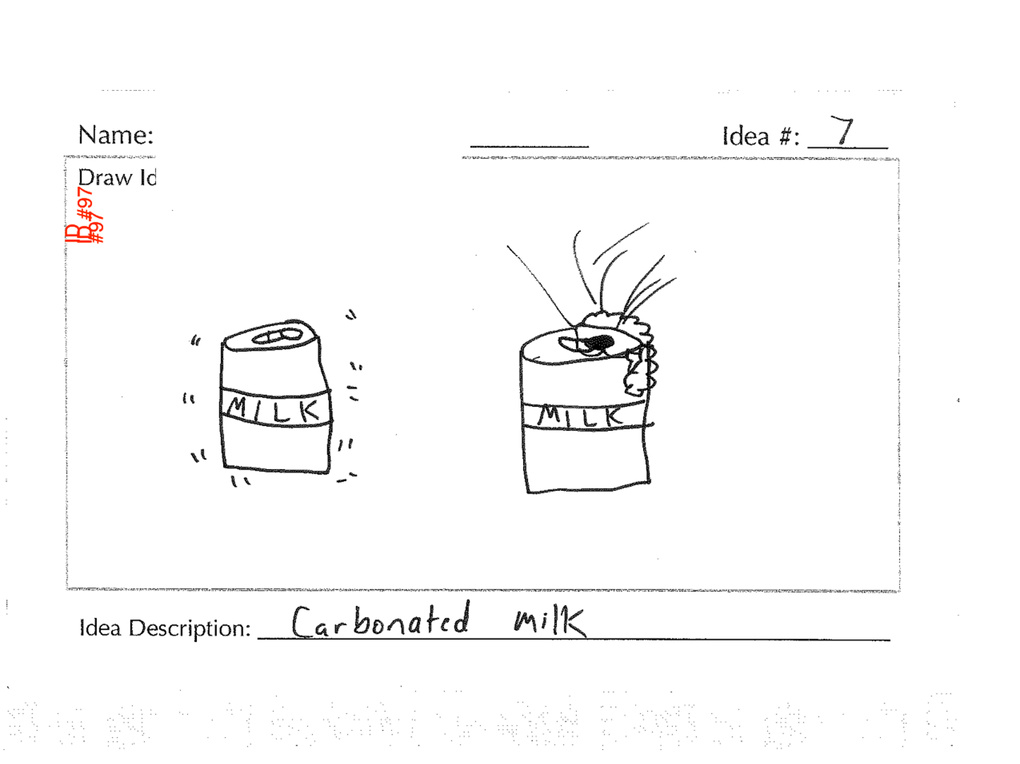 Name: Idea #: 7
Draw Id
ID #97
ID #97
MILK
MILK
Idea Description: Carbonated milk